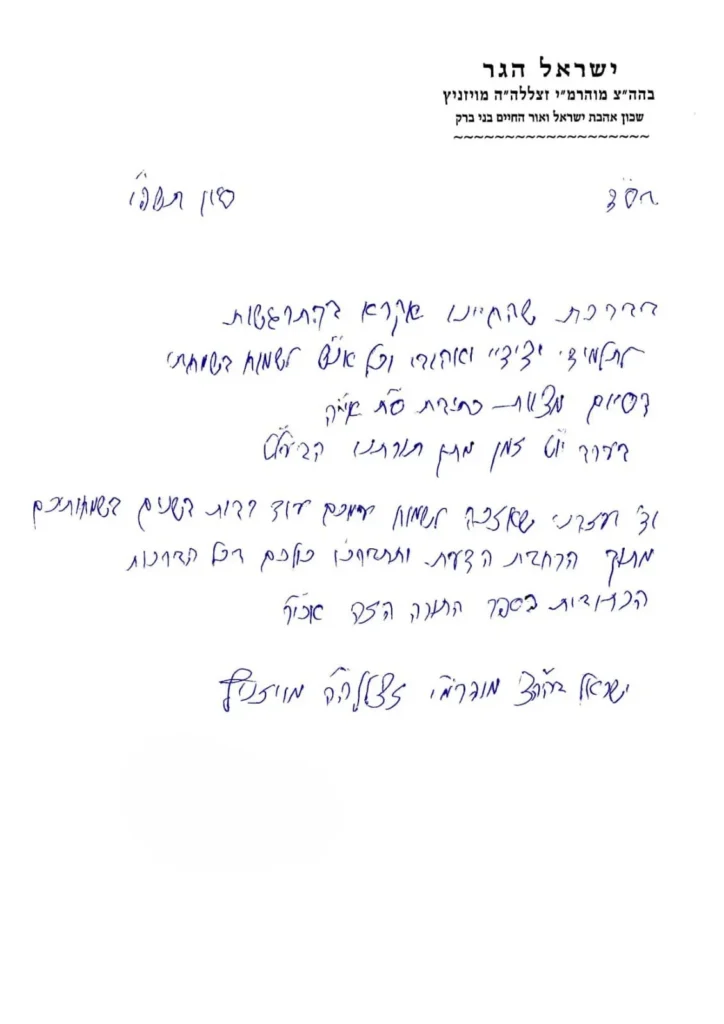 ישראל הגר
בהה"צ מוהרמ"י זצללה"ה מויזניץ
שכון אהבת ישראל ואור החיים בני ברק
בס"ד סיון תשפ"ו
בברכת שהחיינו אקרא בהתרגשות
לתלמידי ידידיי ואהובי וכל אנ"ש לשמוח בשמחתי
בסיום מצות כתיבת ס"ת אי"ה
בערב יו"ט זמן מתן תורתנו הבעל"ט
וד' יעזרני שאזכה לשמוח עמכם עוד רבות בשנים בשמחותיכם
מתוך הרחבת הדעת. ותתברכו כולכם בכל הברכות
הכתובות בספר התורה הזה אכי"ר
ישראל בהה"צ מוהרמ"י זצללה"ה מויזניץ